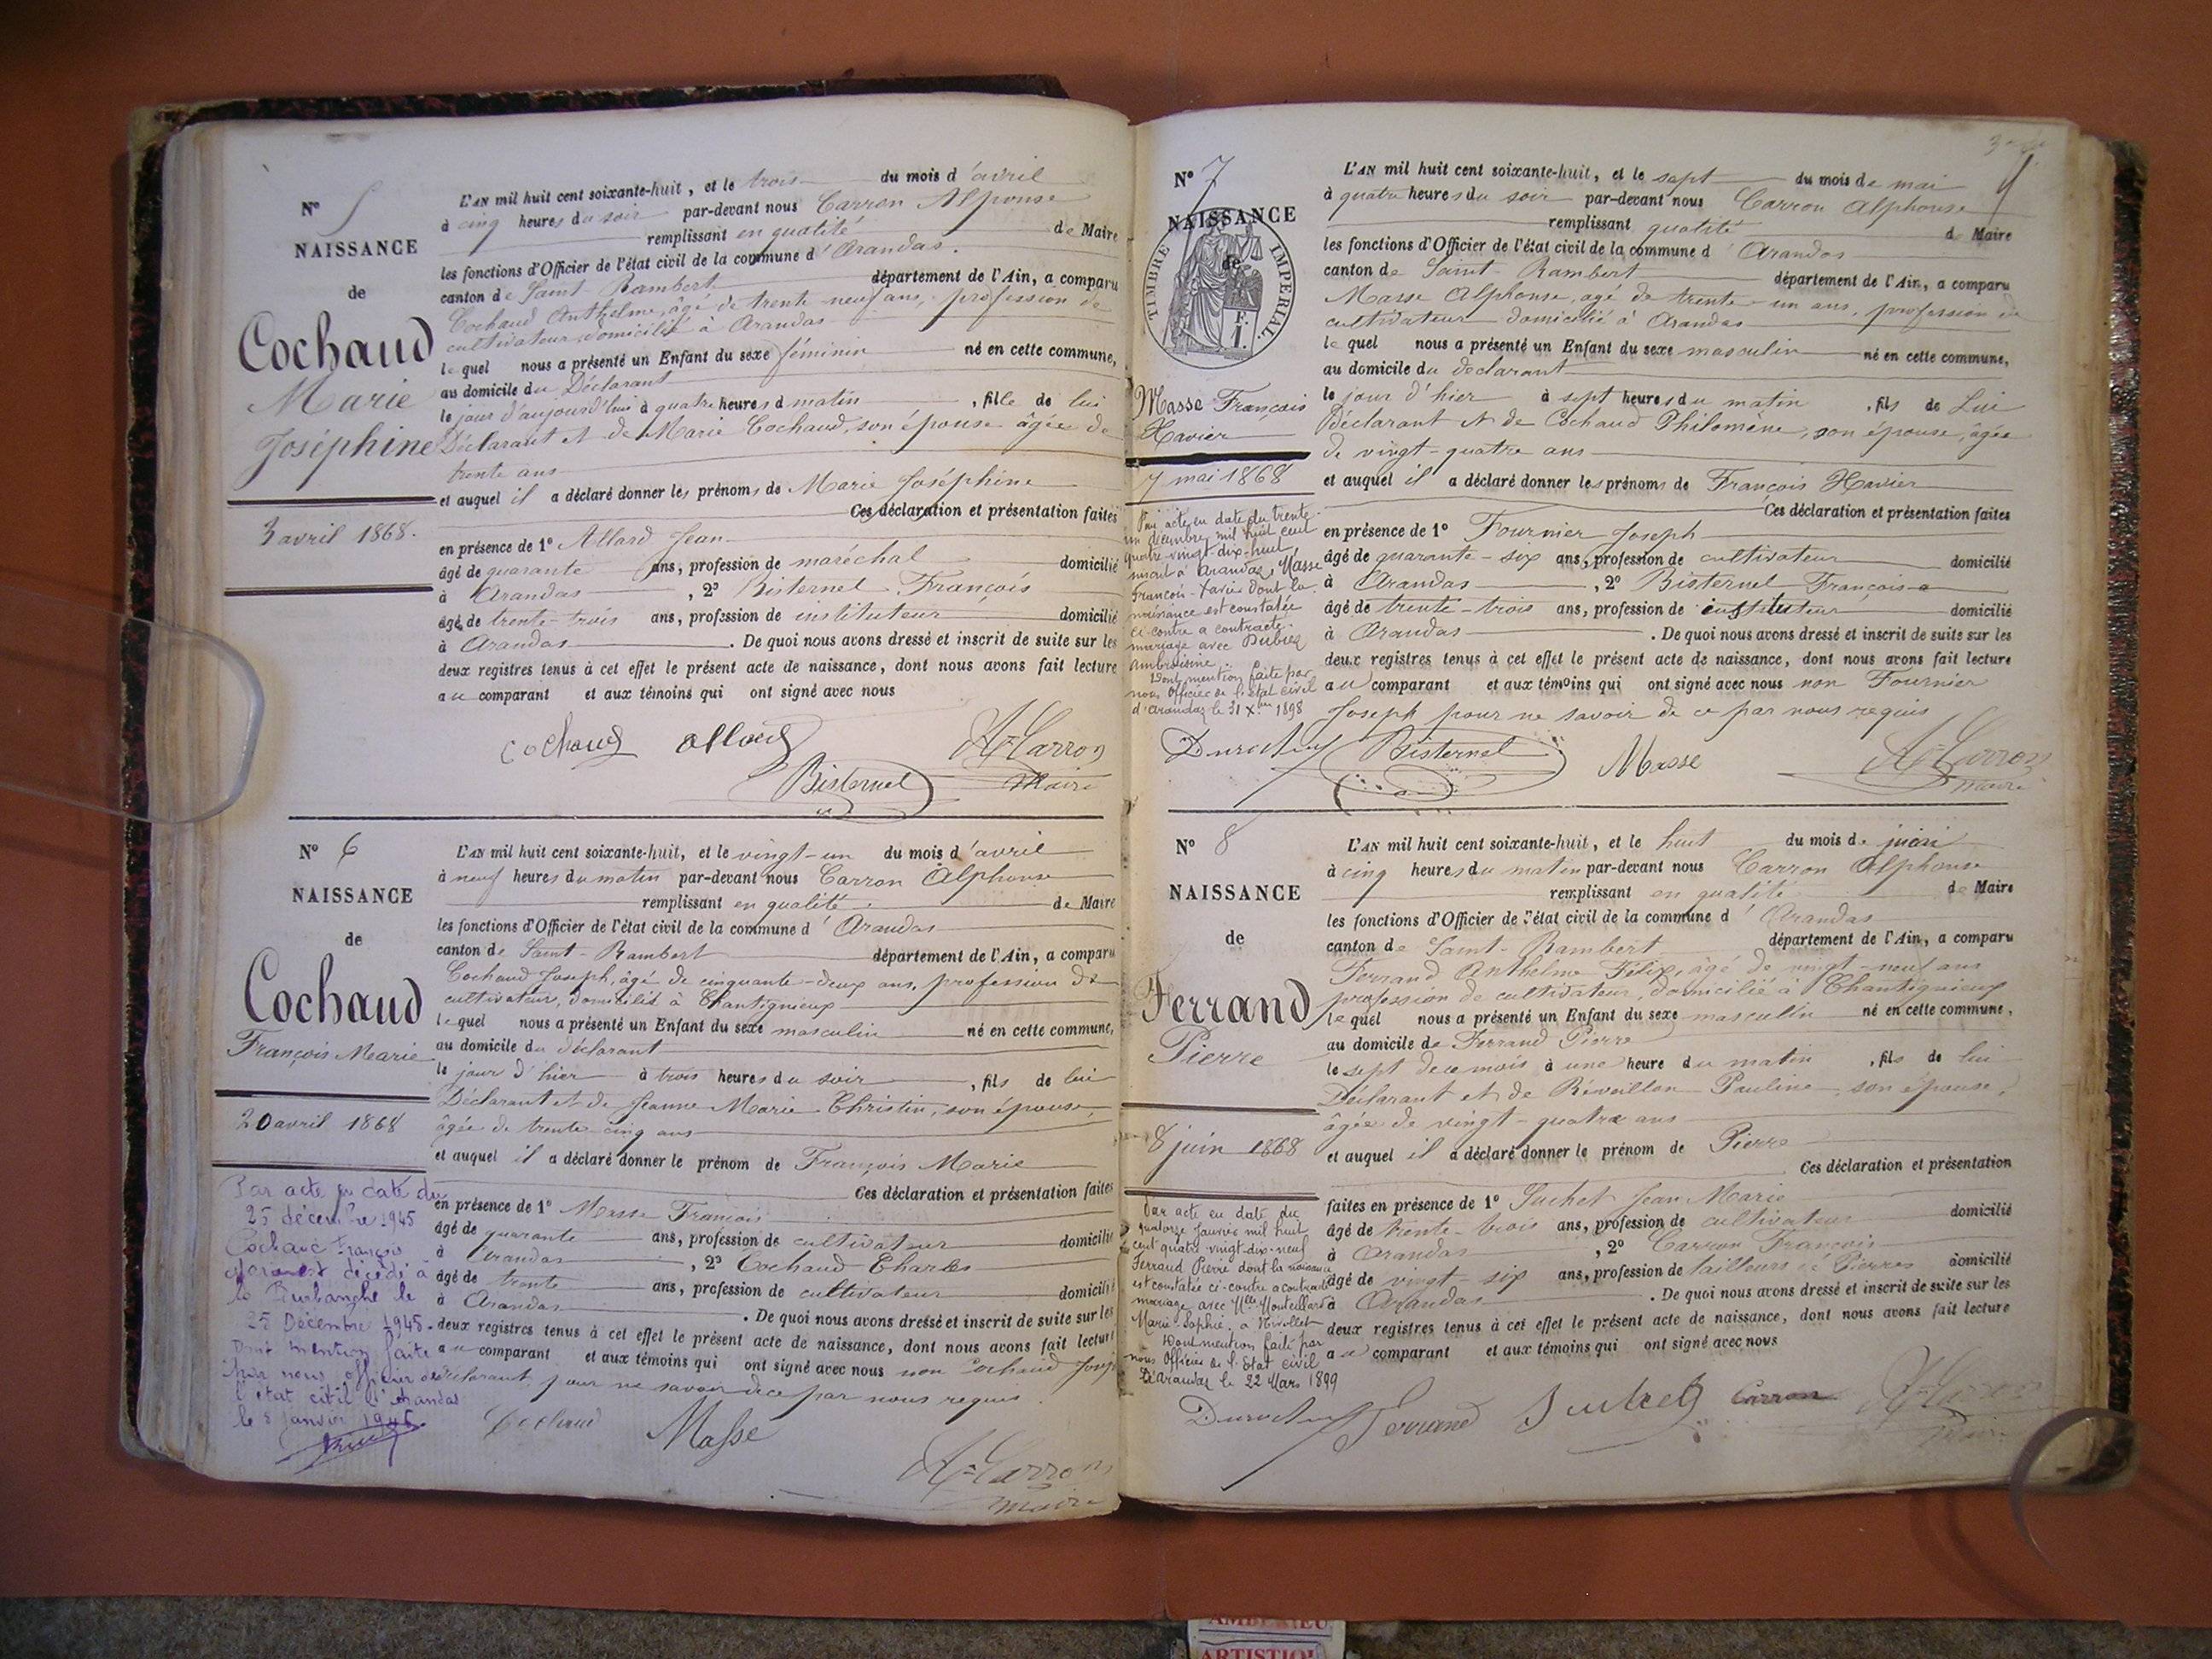 N° 5
NAISSANCE
de
Cochaud
Marie
Joséphine
3 avril 1868.
L'AN mil huit cent soixante-huit, et le trois du mois d'avril
à cinq heures du soir par-devant nous Carron Alphonse
remplissant en qualité de Maire
les fonctions d'Officier de l'état civil de la commune d'Arandas.
canton de Saint Rambert département de l'Ain, a comparu
Cochaud Anthelme, âgé de trente neuf ans, profession de
cultivateur, domicilié à Arandas
lequel nous a présenté un Enfant du sexe féminin né en cette commune,
au domicile du Déclarant
le jour d'aujourd'hui à quatre heures d matin, fille de lui
Déclarant et de Marie Cochaud, son épouse âgée de
trente ans
et auquel il a déclaré donner les prénoms de Marie Joséphine
Ces déclaration et présentation faites
en présence de 1° Allard Jean
âgé de quarante ans, profession de maréchal domicilié
à Arandas, 2° Bisternel François
âgé de trente-trois ans, profession de instituteur domicilié
à Arandas. De quoi nous avons dressé et inscrit de suite sur les
deux registres tenus à cet effet le présent acte de naissance, dont nous avons fait lecture
au comparant et aux témoins qui ont signé avec nous
cochaud allard A. Carron
Bisternel Maire
N° 6
NAISSANCE
de
Cochaud
François Marie
20 avril 1868
Par acte en date du
25 décembre 1945
Cochaud François
décédé à
le
25 Décembre 1945.
Dont mention faite
par nous officier de
l'état civil d'Arandas
le 8 Janvier 1946.
L'AN mil huit cent soixante-huit, et le vingt-un du mois d'avril
à neuf heures du matin par-devant nous Carron Alphonse
remplissant en qualité de Maire
les fonctions d'Officier de l'état civil de la commune d'Arandas
canton de Saint-Rambert département de l'Ain, a comparu
Cochaud Joseph, âgé de cinquante-deux ans, profession de
cultivateur, domicilié à Chantignieux
lequel nous a présenté un Enfant du sexe masculin né en cette commune,
au domicile du déclarant
le jour d'hier à trois heures du soir, fils de lui
Déclarant et de Jeanne Marie Christin, son épouse,
âgée de trente cinq ans
et auquel il a déclaré donner le prénom de François Marie
Ces déclaration et présentation faites
en présence de 1° Masse François
âgé de quarante ans, profession de cultivateur domicilié
à Arandas, 2° Cochaud Charles
âgé de trente ans, profession de cultivateur domicilié
à Arandas. De quoi nous avons dressé et inscrit de suite sur les
deux registres tenus à cet effet le présent acte de naissance, dont nous avons fait lecture
au comparant et aux témoins qui ont signé avec nous non Cochaud Joseph
déclarant pour ne savoir de ce par nous requis.
Cochaud Masse
A. Carron
maire
N° 7
NAISSANCE
de
TIMBRE IMPÉRIAL
F.
1.
Masse François
Xavier
7 mai 1868
Par acte en date du trente-
un décembre mil huit cent
quatre-vingt-dix-huit
inscrit à Arandas, Masse
François-Xavier dont la
naissance est constatée
ci-contre a contracté
mariage avec Dubieq
Ambroisine.
Dont mention faite par
nous Officier de l'état civil
d'Arandas le 31 Xbre 1898
L'AN mil huit cent soixante-huit, et le sept du mois de mai
à quatre heures du soir par-devant nous Carron Alphonse
remplissant qualité de Maire
les fonctions d'Officier de l'état civil de la commune d'Arandas
canton de Saint-Rambert département de l'Ain, a comparu
Masse Alphonse, agé de trente-un ans, profession de
cultivateur domicilié à Arandas
lequel nous a présenté un Enfant du sexe masculin né en cette commune,
au domicile du declarant
le jour d'hier à sept heures du matin, fils de Lui
Déclarant et de Cochaud Philomène, son épouse, âgée
de vingt-quatre ans
et auquel il a déclaré donner les prénoms de François Xavier
Ces déclaration et présentation faites
en présence de 1° Fournier Joseph
âgé de quarante-six ans, profession de cultivateur domicilié
à Arandas, 2° Bisternel François
âgé de trente-trois ans, profession de instituteur domicilié
à Arandas. De quoi nous avons dressé et inscrit de suite sur les
deux registres tenus à cet effet le présent acte de naissance, dont nous avons fait lecture
au comparant et aux témoins qui ont signé avec nous non Fournier
Joseph pour ne savoir de ce par nous requis
Bisternel Masse A. Carron
maire
N° 8
NAISSANCE
de
Ferrand
Pierre
8 juin 1868
Par acte en date du
quatorze Janvier mil huit
cent quatre-vingt-dix-neuf
Ferrand Pierre dont la naissance
est constatée ci-contre a contracté
mariage avec Mlle Monteillard
Marie-Sophie, à Nivollet
Dont mention faite par
nous Officier de l'Etat civil
D'Arandas le 22 Mars 1899
L'AN mil huit cent soixante-huit, et le huit du mois de juin
à cinq heures du matin par-devant nous Carron Alphonse
remplissant en qualité de Maire
les fonctions d'Officier de l'état civil de la commune d'Arandas
canton de Saint-Rambert département de l'Ain, a comparu
Ferrand Anthelme Félix, âgé de vingt-neuf ans
profession de cultivateur, domicilié à Chantignieux
lequel nous a présenté un Enfant du sexe masculin né en cette commune,
au domicile de Ferrand Pierre
le sept de ce mois à une heure du matin, fils de lui
Déclarant et de Réveillon Pauline, son épouse,
âgée de vingt-quatre ans
et auquel il a déclaré donner le prénom de Pierre
Ces déclaration et présentation
faites en présence de 1° Juchet Jean Marie
âgé de trente-trois ans, profession de cultivateur domicilié
à Arandas, 2° Carron François
âgé de vingt-six ans, profession de tailleurs de Pierres domicilié
à Arandas. De quoi nous avons dressé et inscrit de suite sur les
deux registres tenus à cet effet le présent acte de naissance, dont nous avons fait lecture
au comparant et aux témoins qui ont signé avec nous
Ferrand Juchet Carron A. Carron
Maire
AMBÉRIEU